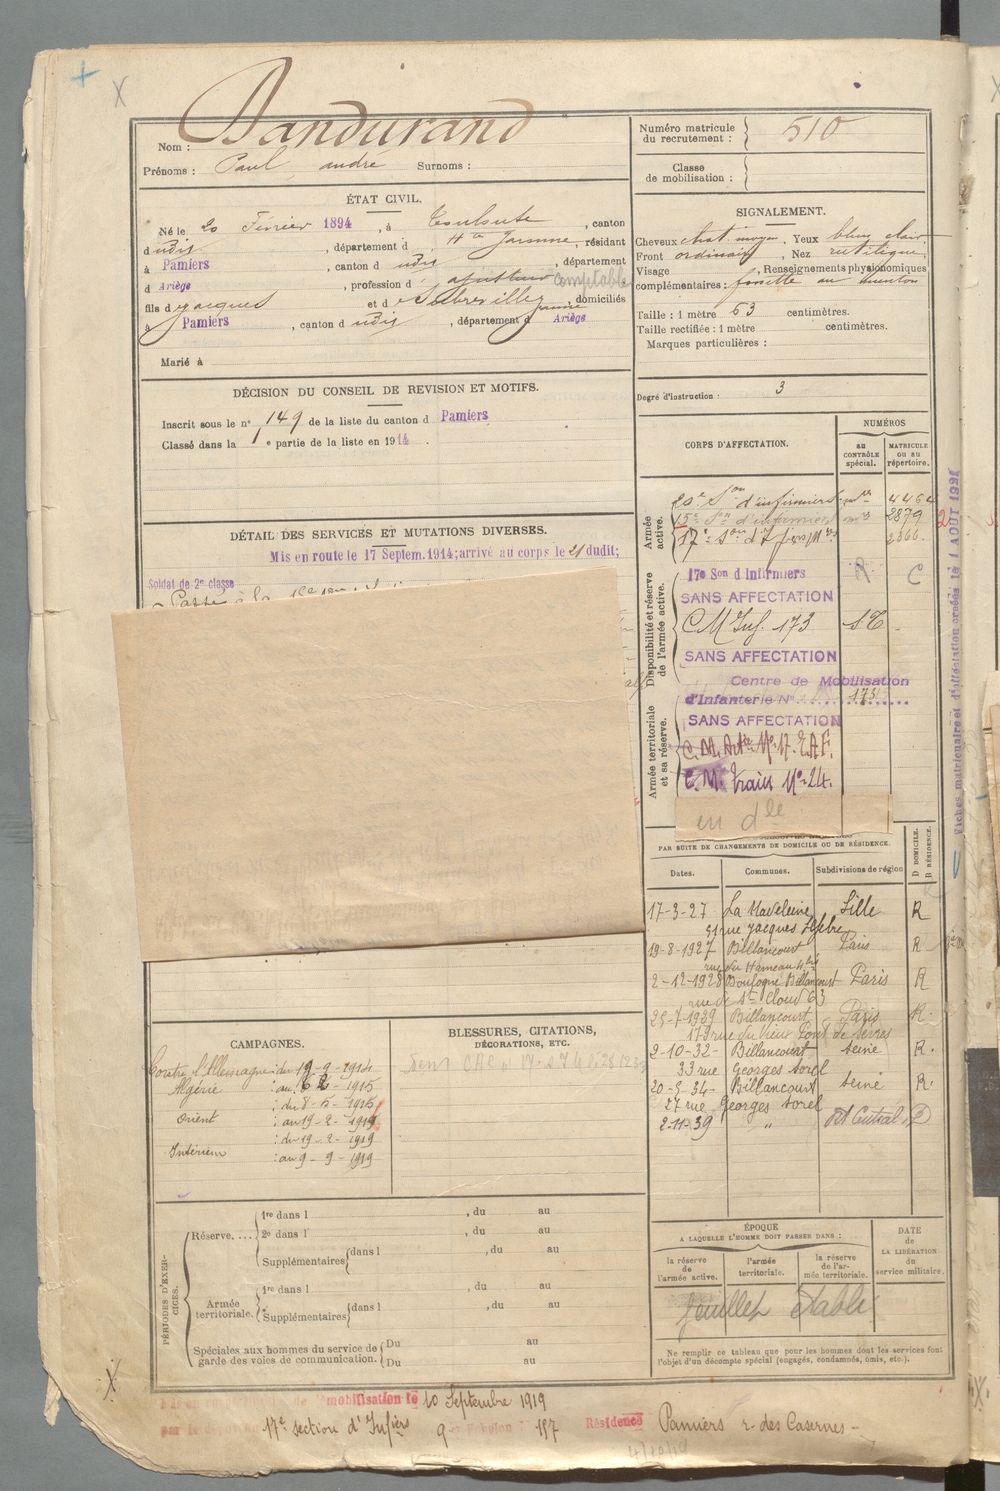 Nom : Dandurand
Prénoms : Paul andre Surnoms :
Numéro matricule du recrutement : 510
Classe de mobilisation :
ÉTAT CIVIL.
Né le 20 Février 1894, à Toulouse, canton
dudis, département d Hte Garonne, résidant
à Pamiers, canton d udis, département
d Ariège, profession d ajusteur comptable
fils de Jacques et d domiciliés
à Pamiers, canton d udis, département d Ariège
Marié à
SIGNALEMENT.
Cheveux chat moyen, Yeux bleu clair
Front ordinaire, Nez rectiligne,
Visage , Renseignements physionomiques
complémentaires : fossette au menton
Taille : 1 mètre 63 centimètres.
Taille rectifiée : 1 mètre centimètres.
Marques particulières :
Degré d'instruction : 3
DÉCISION DU CONSEIL DE REVISION ET MOTIFS.
Inscrit sous le n° 149 de la liste du canton d Pamiers
Classé dans la 1e partie de la liste en 1914.
DÉTAIL DES SERVICES ET MUTATIONS DIVERSES.
Mis en route le 17 Septem. 1914; arrivé au corps le 21 dudit;
Soldat de 2e classe
Passé à la
CORPS D'AFFECTATION.
NUMÉROS
au CONTRÔLE spécial.
MATRICULE OU AU RÉPERTOIRE.
Armée active.
20e Son d'infirmiers mre 4464
15e Son d'infirmiers mre 2879
17e Son d'Infirs Mres
Disponibilité et réserve de l'armée active.
17e Son d Infirmiers R C
SANS AFFECTATION
C M Inf. 173 SC
SANS AFFECTATION
Centre de Mobilisation
d'Infanterie N° 173
Armée territoriale et sa réserve.
SANS AFFECTATION
C. M. Artie No 17. E.A.F.
C. M. Train No 24.
en dle
Fiches matriculaire et d'affectation créées le 1 AOUT 1921
PAR SUITE DE CHANGEMENTS DE DOMICILE OU DE RÉSIDENCE.
Dates. Communes. Subdivisions de région D DOMICILE. R RÉSIDENCE.
17-3-27 La Madeleine Lille R
51 rue Jacques Lefebre
19-8-1927 Billancourt Paris R
rue du Hameau 4 bis
2-12-1928 Boulogne Billancourt Paris R
rue de St Cloud 63
25-7-1929 Billancourt Paris R.
179 rue du Vieux Pont de Sèvres
2-10-32- Billancourt Seine R.
33 rue Georges Sorel
20-5-34- Billancourt Seine R.
27 rue Georges Sorel
2-11-39 " Pt Central D
CAMPAGNES.
Contre l'Allemagne : du 19-9-1914
Algérie : au 6 2-1915
: du 8-5-1915
Orient : au 19-2-1919
: du 19-2-1919
Intérieur : au 9-9-1919
BLESSURES, CITATIONS, DÉCORATIONS, ETC.
PÉRIODES D'EXERCICES.
Réserve, .... 1re dans l , du au
2e dans l , du au
Supplémentaires dans l , du au
Armée territoriale. 1re dans l , du au
Supplémentaires dans l , du au
Spéciales aux hommes du service de garde des voies de communication. Du au
Du au
ÉPOQUE
A LAQUELLE L'HOMME DOIT PASSER DANS :
la réserve de l'armée active.
l'armée territoriale.
la réserve de l'armée territoriale.
DATE de LA LIBÉRATION du service militaire.
feuillet établi
Ne remplir ce tableau que pour les hommes dont les services font
l'objet d'un décompte spécial (engagés, condamnés, omis, etc.).
Mis en démobilisation le 10 Septembre 1919
par le dépôt du 17e section d'Infirs 9e Echelon 157 Résidence Pamiers r. des Casernes -